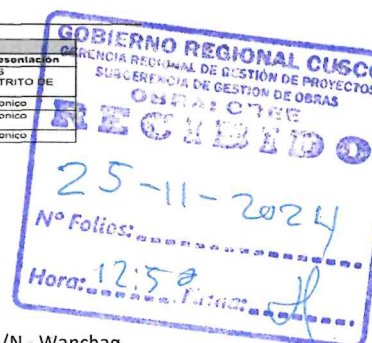 esentación
S
TRITO DE
onico
onico
onico
GOBIERNO REGIONAL CUSCO
GERENCIA REGIONAL DE GESTIÓN DE PROYECTOS
SUBGERENCIA DE GESTIÓN DE OBRAS
OBRA:
RECIBIDO
25-11-2024
N° Folios:
Hora: 12:5 Firma:
/N - Wanchaq